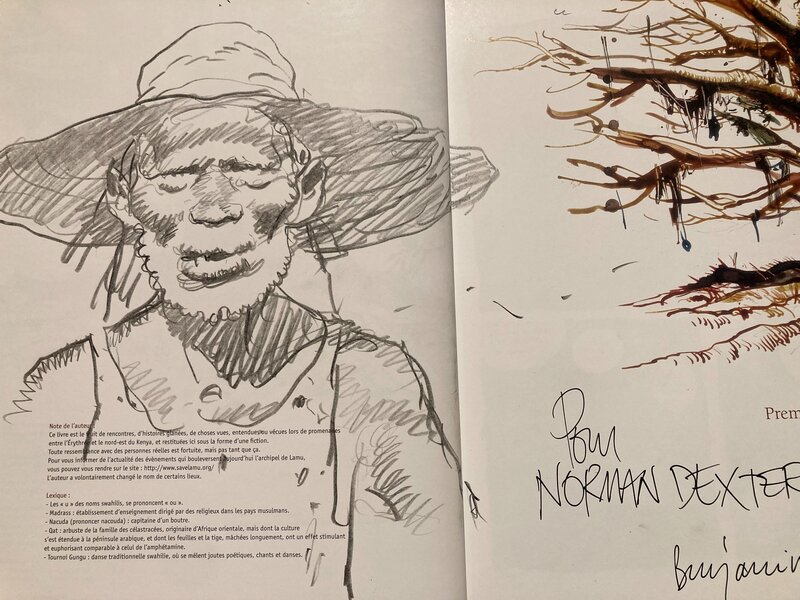 Note de l'auteur :
Ce livre est le fruit de rencontres, d'histoires glanées, de choses vues, entendues ou vécues lors de promenades
entre l'Érythrée et le nord-est du Kenya, et restituées ici sous la forme d'une fiction.
Toute ressemblance avec des personnes réelles est fortuite, mais pas tant que ça.
Pour vous informer de l'actualité des évènements qui bouleversent aujourd'hui l'archipel de Lamu,
vous pouvez vous rendre sur le site : http://www.savelamu.org/
L'auteur a volontairement changé le nom de certains lieux.
Lexique :
- Les « u » des noms swahilis, se prononcent « ou ».
- Madrass : établissement d'enseignement dirigé par des religieux dans les pays musulmans.
- Nacuda (prononcer nacouda) : capitaine d'un boutre.
- Qat : arbuste de la famille des célastracées, originaire d'Afrique orientale, mais dont la culture
s'est étendue à la péninsule arabique, et dont les feuilles et la tige, mâchées longuement, ont un effet stimulant
et euphorisant comparable à celui de l'amphétamine.
- Tournoi Gungu : danse traditionnelle swahilie, où se mêlent joutes poétiques, chants et danses.
Prem
Pour
NORMAN DEXTER
Benjamin